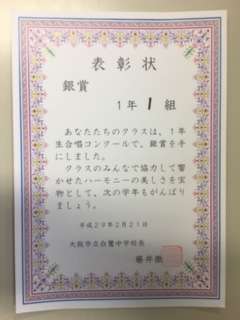 表彰状
銀賞
1年 1組
あなたたちのクラスは、1年
生合唱コンクールで、銀賞を手
にしました。
クラスのみんなで協力して響
かせたハーモニーの美しさを宝
物として、次の学年もがんばり
ましょう。
平成29年2月21日
大阪市立白鷺中学校長